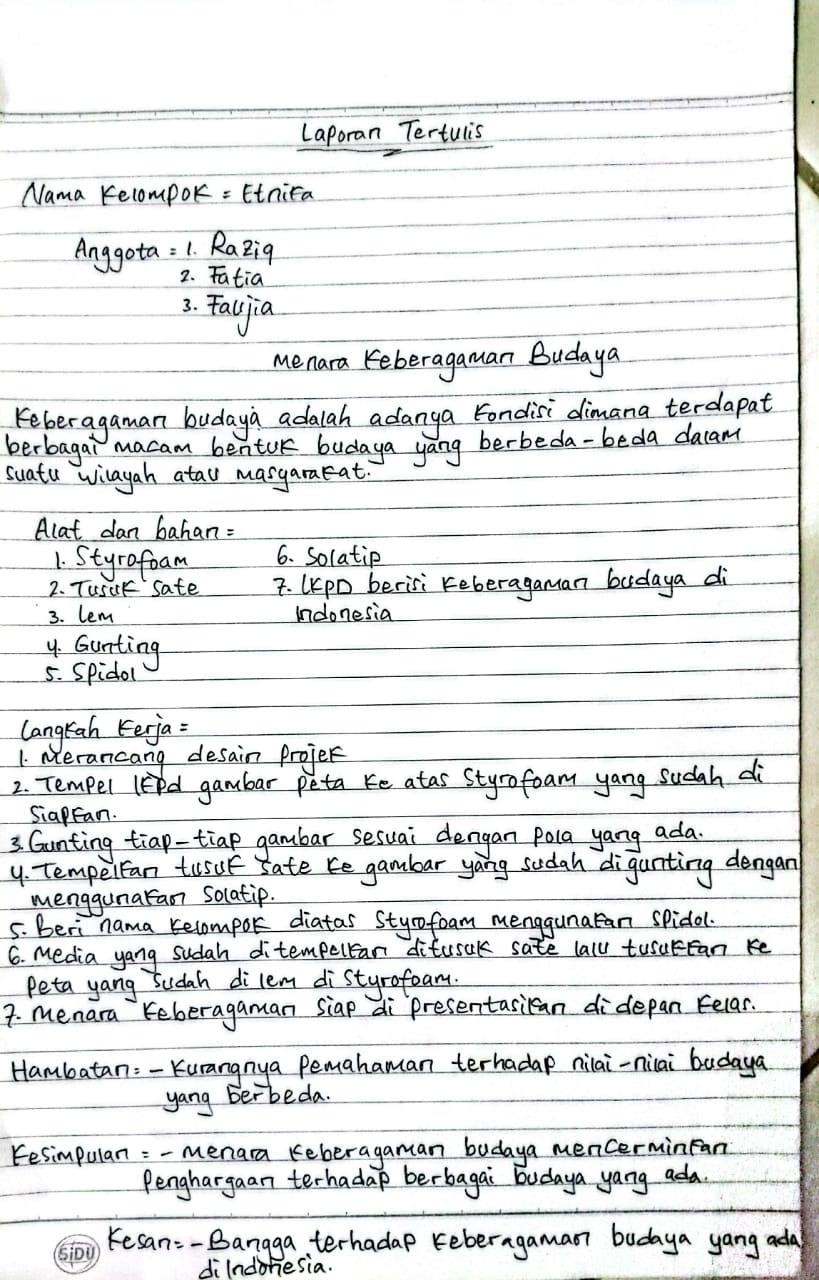 Laporan Tertulis
Nama Kelompok = Etnika
Anggota = 1. Raziq
2. Fatia
3. Faujia
Menara Keberagaman Budaya
Keberagaman budaya adalah adanya kondisi dimana terdapat
berbagai macam bentuk budaya yang berbeda-beda dalam
suatu wilayah atau masyarakat.
Alat dan bahan =
1. Styrofoam
2. Tusuk sate
3. Lem
4. Gunting
5. Spidol
6. Solatip
7. LKPD berisi keberagaman budaya di
Indonesia
Langkah kerja =
1. Merancang desain projek
2. Tempel lkpd gambar peta ke atas Styrofoam yang sudah di
siapkan.
3. Gunting tiap-tiap gambar sesuai dengan pola yang ada.
4. Tempelkan tusuk sate ke gambar yang sudah di gunting dengan
menggunakan solatip.
5. Beri nama kelompok diatas Styrofoam menggunakan spidol.
6. Media yang sudah di tempelkan ditusuk sate lalu tusukkan ke
peta yang sudah di lem di Styrofoam.
7. Menara keberagaman siap di presentasikan di depan kelas.
Hambatan: - Kurangnya pemahaman terhadap nilai-nilai budaya
yang berbeda.
Kesimpulan = - Menara keberagaman budaya mencerminkan
penghargaan terhadap berbagai budaya yang ada.
Kesan: - Bangga terhadap keberagaman budaya yang ada
di Indonesia.
SiDU